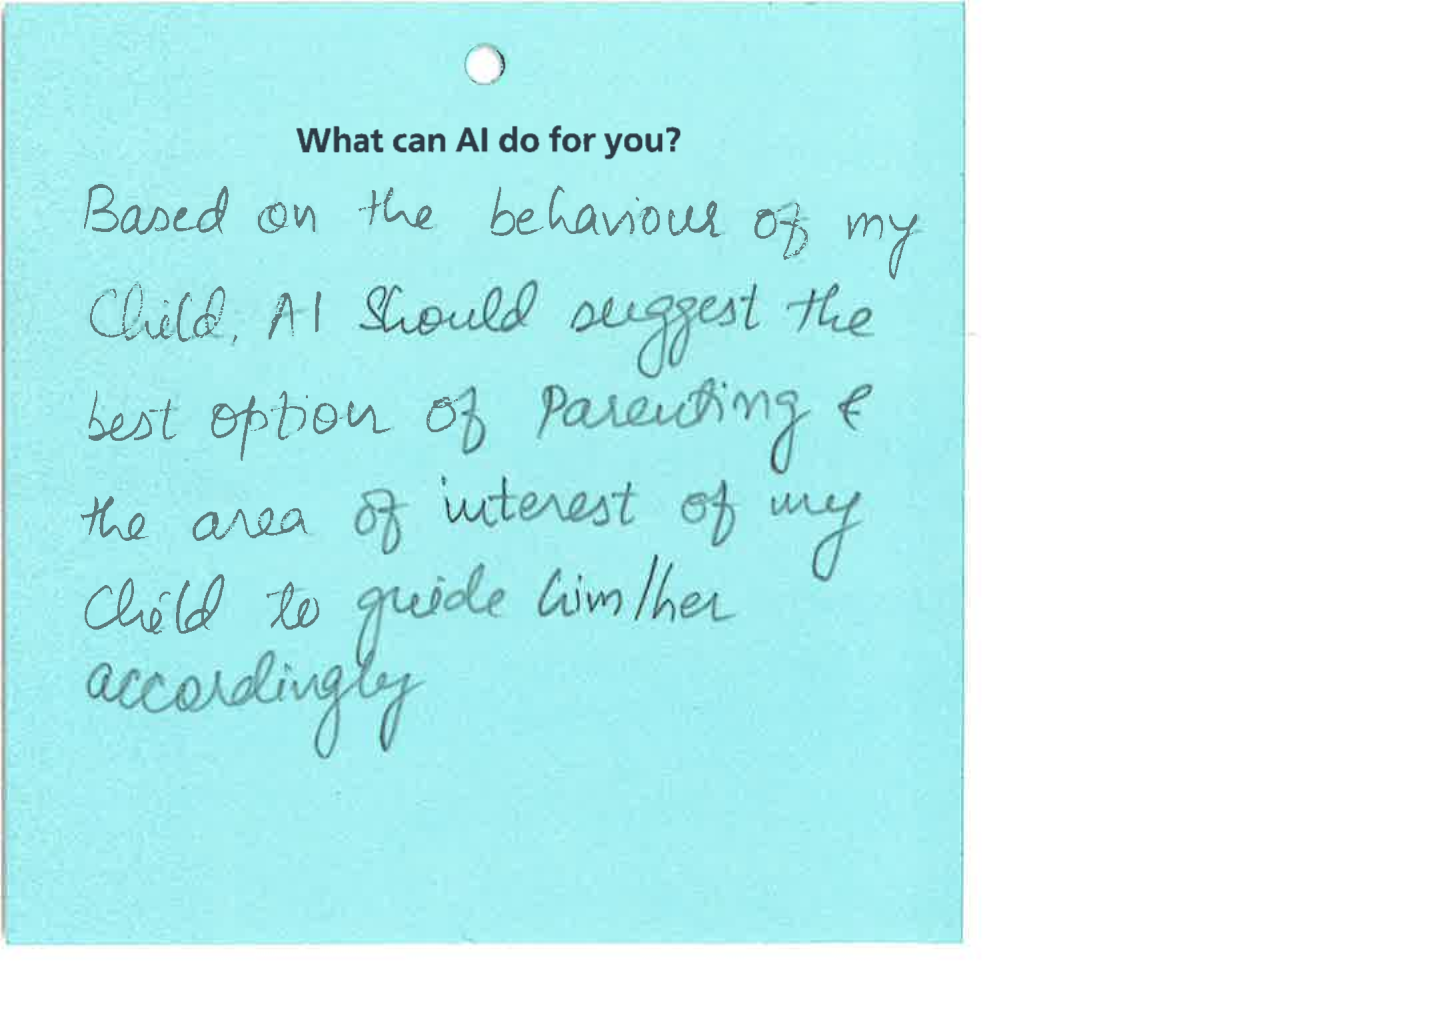 What can AI do for you?
Based on the behaviour of my
Child, AI Should suggest the
best option of Parenting &
the area of interest of my
Child to guide him/her
accordingly